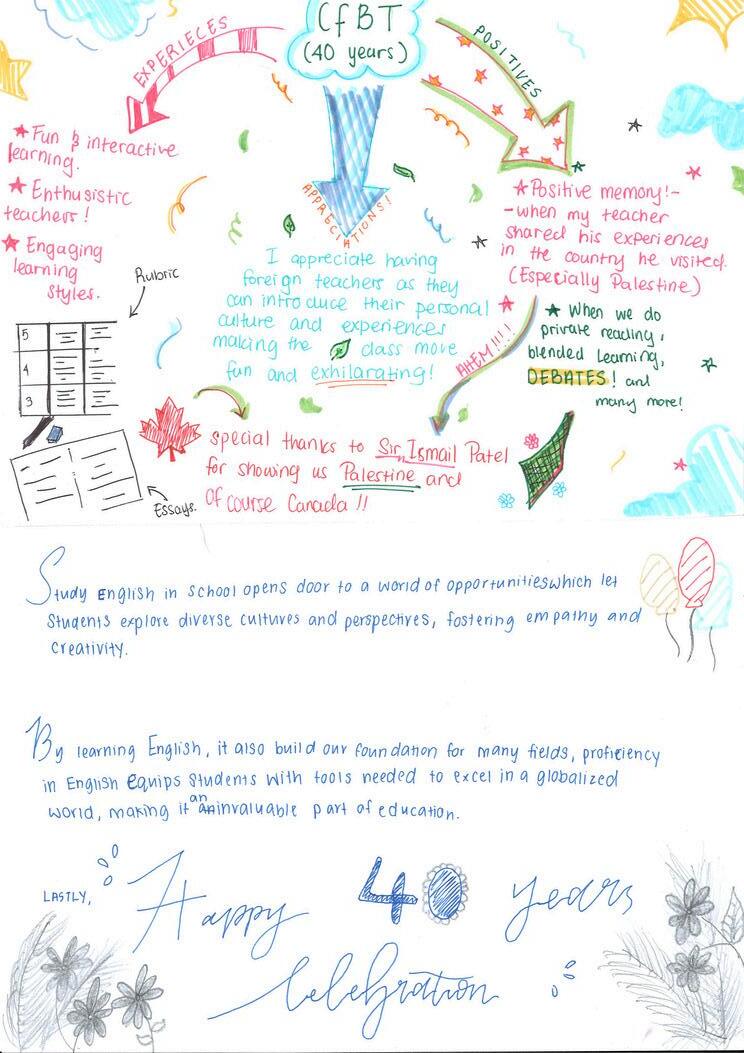 CfBT
(40 years)
EXPERIECES
★ Fun & interactive
learning.
★ Enthusistic
teachers!
★ Engaging
learning
styles.
Rubric
5
4
3
Essays.
APPRECIATIONS!
I appreciate having
foreign teachers as they
can introduce their personal
culture and experiences
making the class more
fun and exhilarating!
POSITIVES
★ Positive memory!-
-when my teacher
shared his experiences
in the country he visited.
(Especially Palestine)
★ When we do
private reading,
blended learning,
DEBATES! and
many more!
AHEM!!!!
special thanks to Sir Ismail Patel
for showing us Palestine and
Of course Canada!!
Study English in school opens door to a world of opportunities which let
students explore diverse cultures and perspectives, fostering empathy and
creativity.
By learning English, it also build our foundation for many fields, proficiency
in English equips students with tools needed to excel in a globalized
world, making it an invaluable part of education.
LASTLY,
Happy 40 years
Celebration